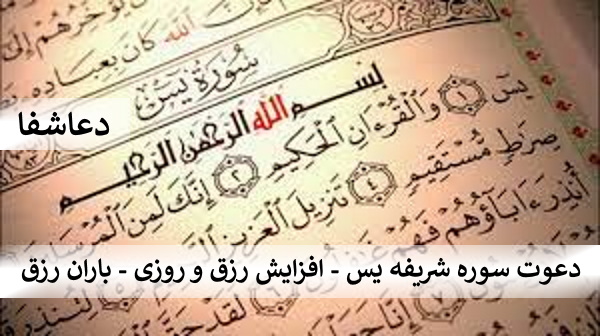 كَانَ بِعِبَادِهِ
سُورَةُ يس
بِسْمِ اللَّهِ الرَّحْمَٰنِ الرَّحِيمِ
يسٓ ١ وَالْقُرْءَانِ الْحَكِيمِ ٢ إِنَّكَ لَمِنَ
صِرَٰطٍ مُّسْتَقِيمٍ ٤ تَنزِيلَ الْعَزِيزِ
أُنذِرَ ءَابَآؤُهُمْ فَهُمْ
دعاشفا
دعوت سوره شریفه یس - افزایش رزق و روزی - باران رزق